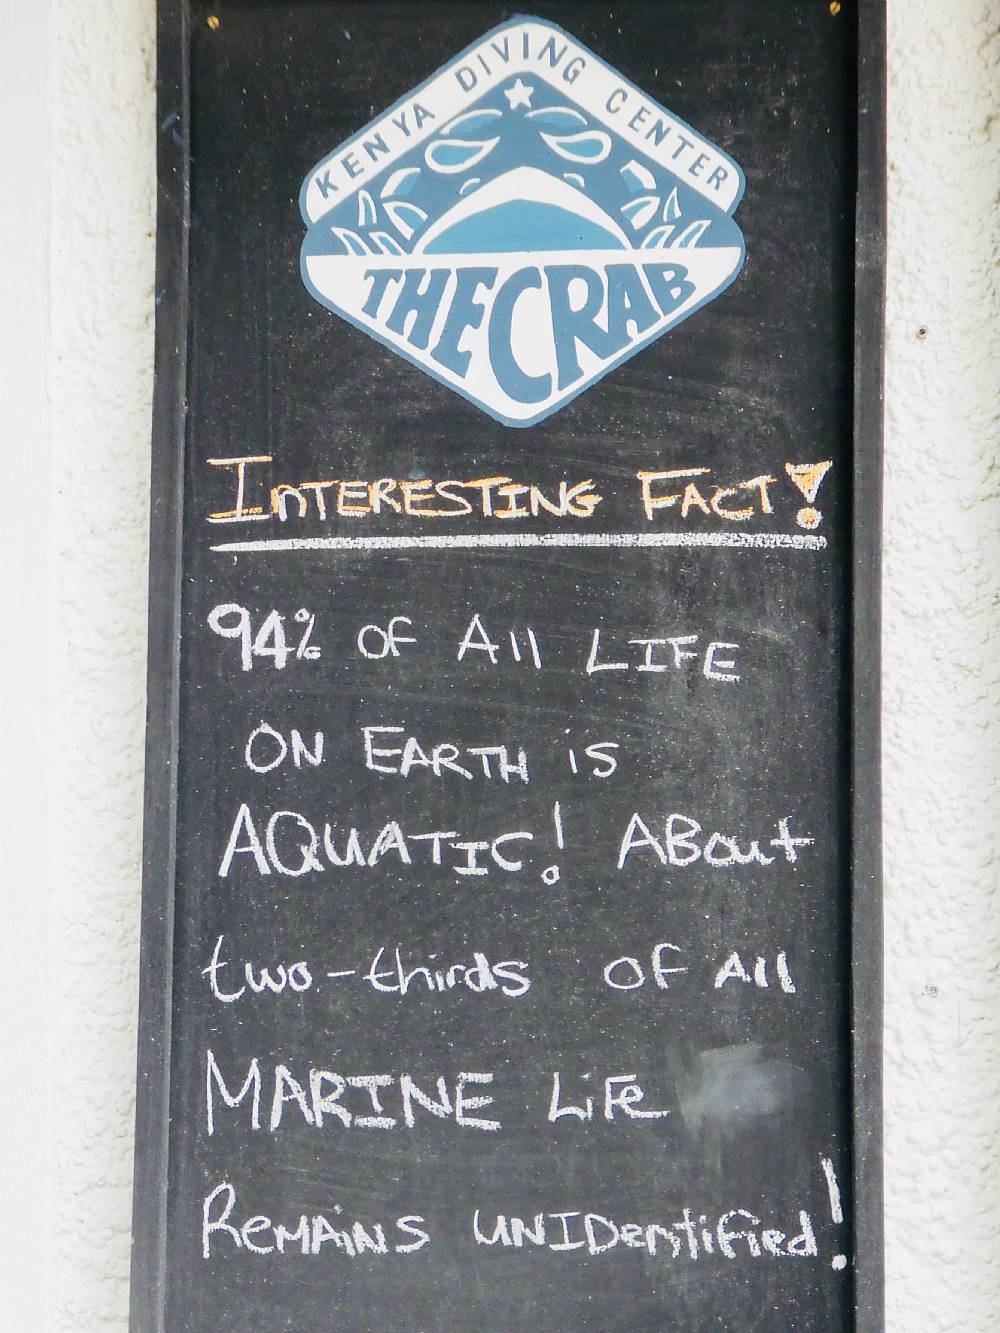 KENYA DIVING CENTER
THE CRAB
INTERESTING FACT!
94% OF All LIFE
ON EARTH is
AQUATIC! ABout
two-thirds OF All
MARINE LiFe
ReMAiNS UNIDentified!